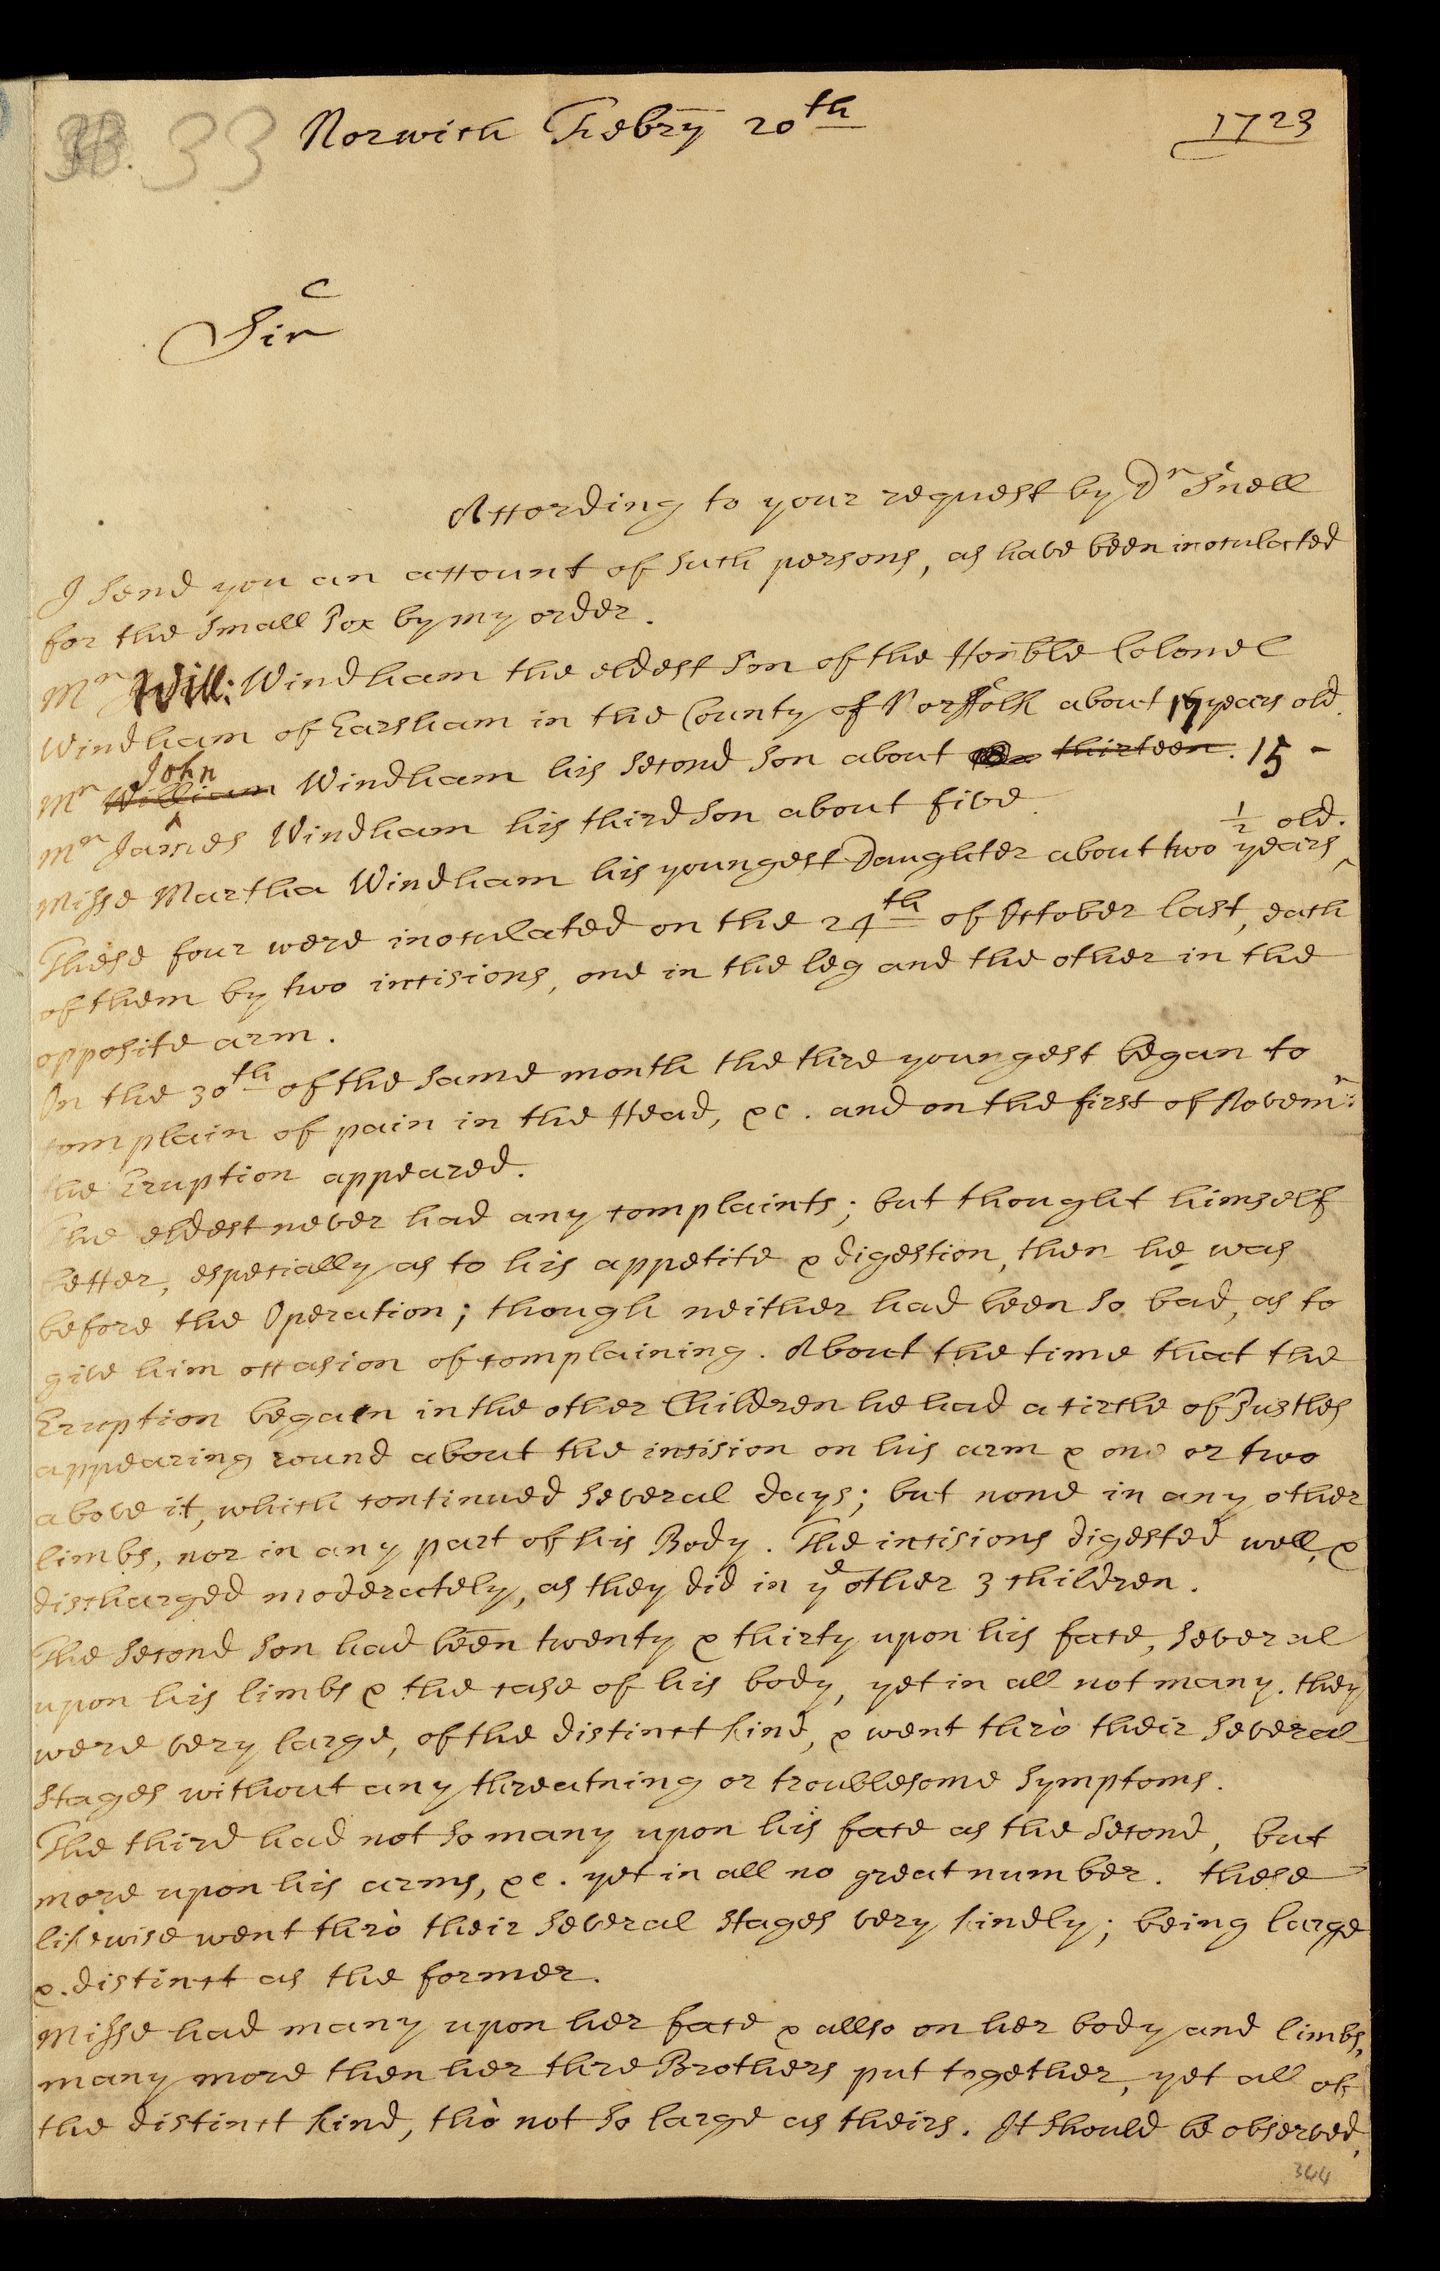 33. 33 Norwich Febry 20th 1723
Sir
According to your request by Dr Snell
I send you an account of such persons, as have been inoculated
for the Small Pox by my order.
Mr Will: Windham the eldest son of the Honble Colonel
Windham of Earsham in the County of Norffolk about 17 years old.
Mr William John Windham his second son about thirteen. 15 -
Mr James Windham his third son about five
Misse Martha Windham his youngest Daughter about two 1/2 years old.
These four were inoculated on the 24th of October last, each
of them by two incisions, one in the leg and the other in the
opposite arm.
On the 30th of the same month the thre youngest began to
complain of pain in the Head, &c. and on the first of Novemr:
the Eruption appeared.
The eldest never had any complaints; but thought himself
better, especially as to his appetite & digestion, then he was
before the Operation; though neither had been so bad, as to
give him occasion of complaining. About the time that the
Eruption began in the other Children he had a circle of Pustles
appearing round about the incision on his arm & one or two
above it, which continued several days; but none in any other
limbs, nor in any part of his Body. The incisions digested well, &
discharged moderately, as they did in ye other 3 children.
The second son had been twenty & thirty upon his face, several
upon his limbs & the case of his body, yet in all not many. they
were very large, of the distinct kind, & went thrò their several
stages without any threatning or troublesome symptoms.
The third had not so many upon his face as the second, but
more upon his arms, &c. yet in all no great number. these
likewise went thrò their several stages very kindly; being large
&. distinct as the former.
Misse had many upon her face & allso on her body and limbs,
many more then her thre Brothers put together, yet all of
the distinct kind, thò not so large as theirs. It should be observed,
344